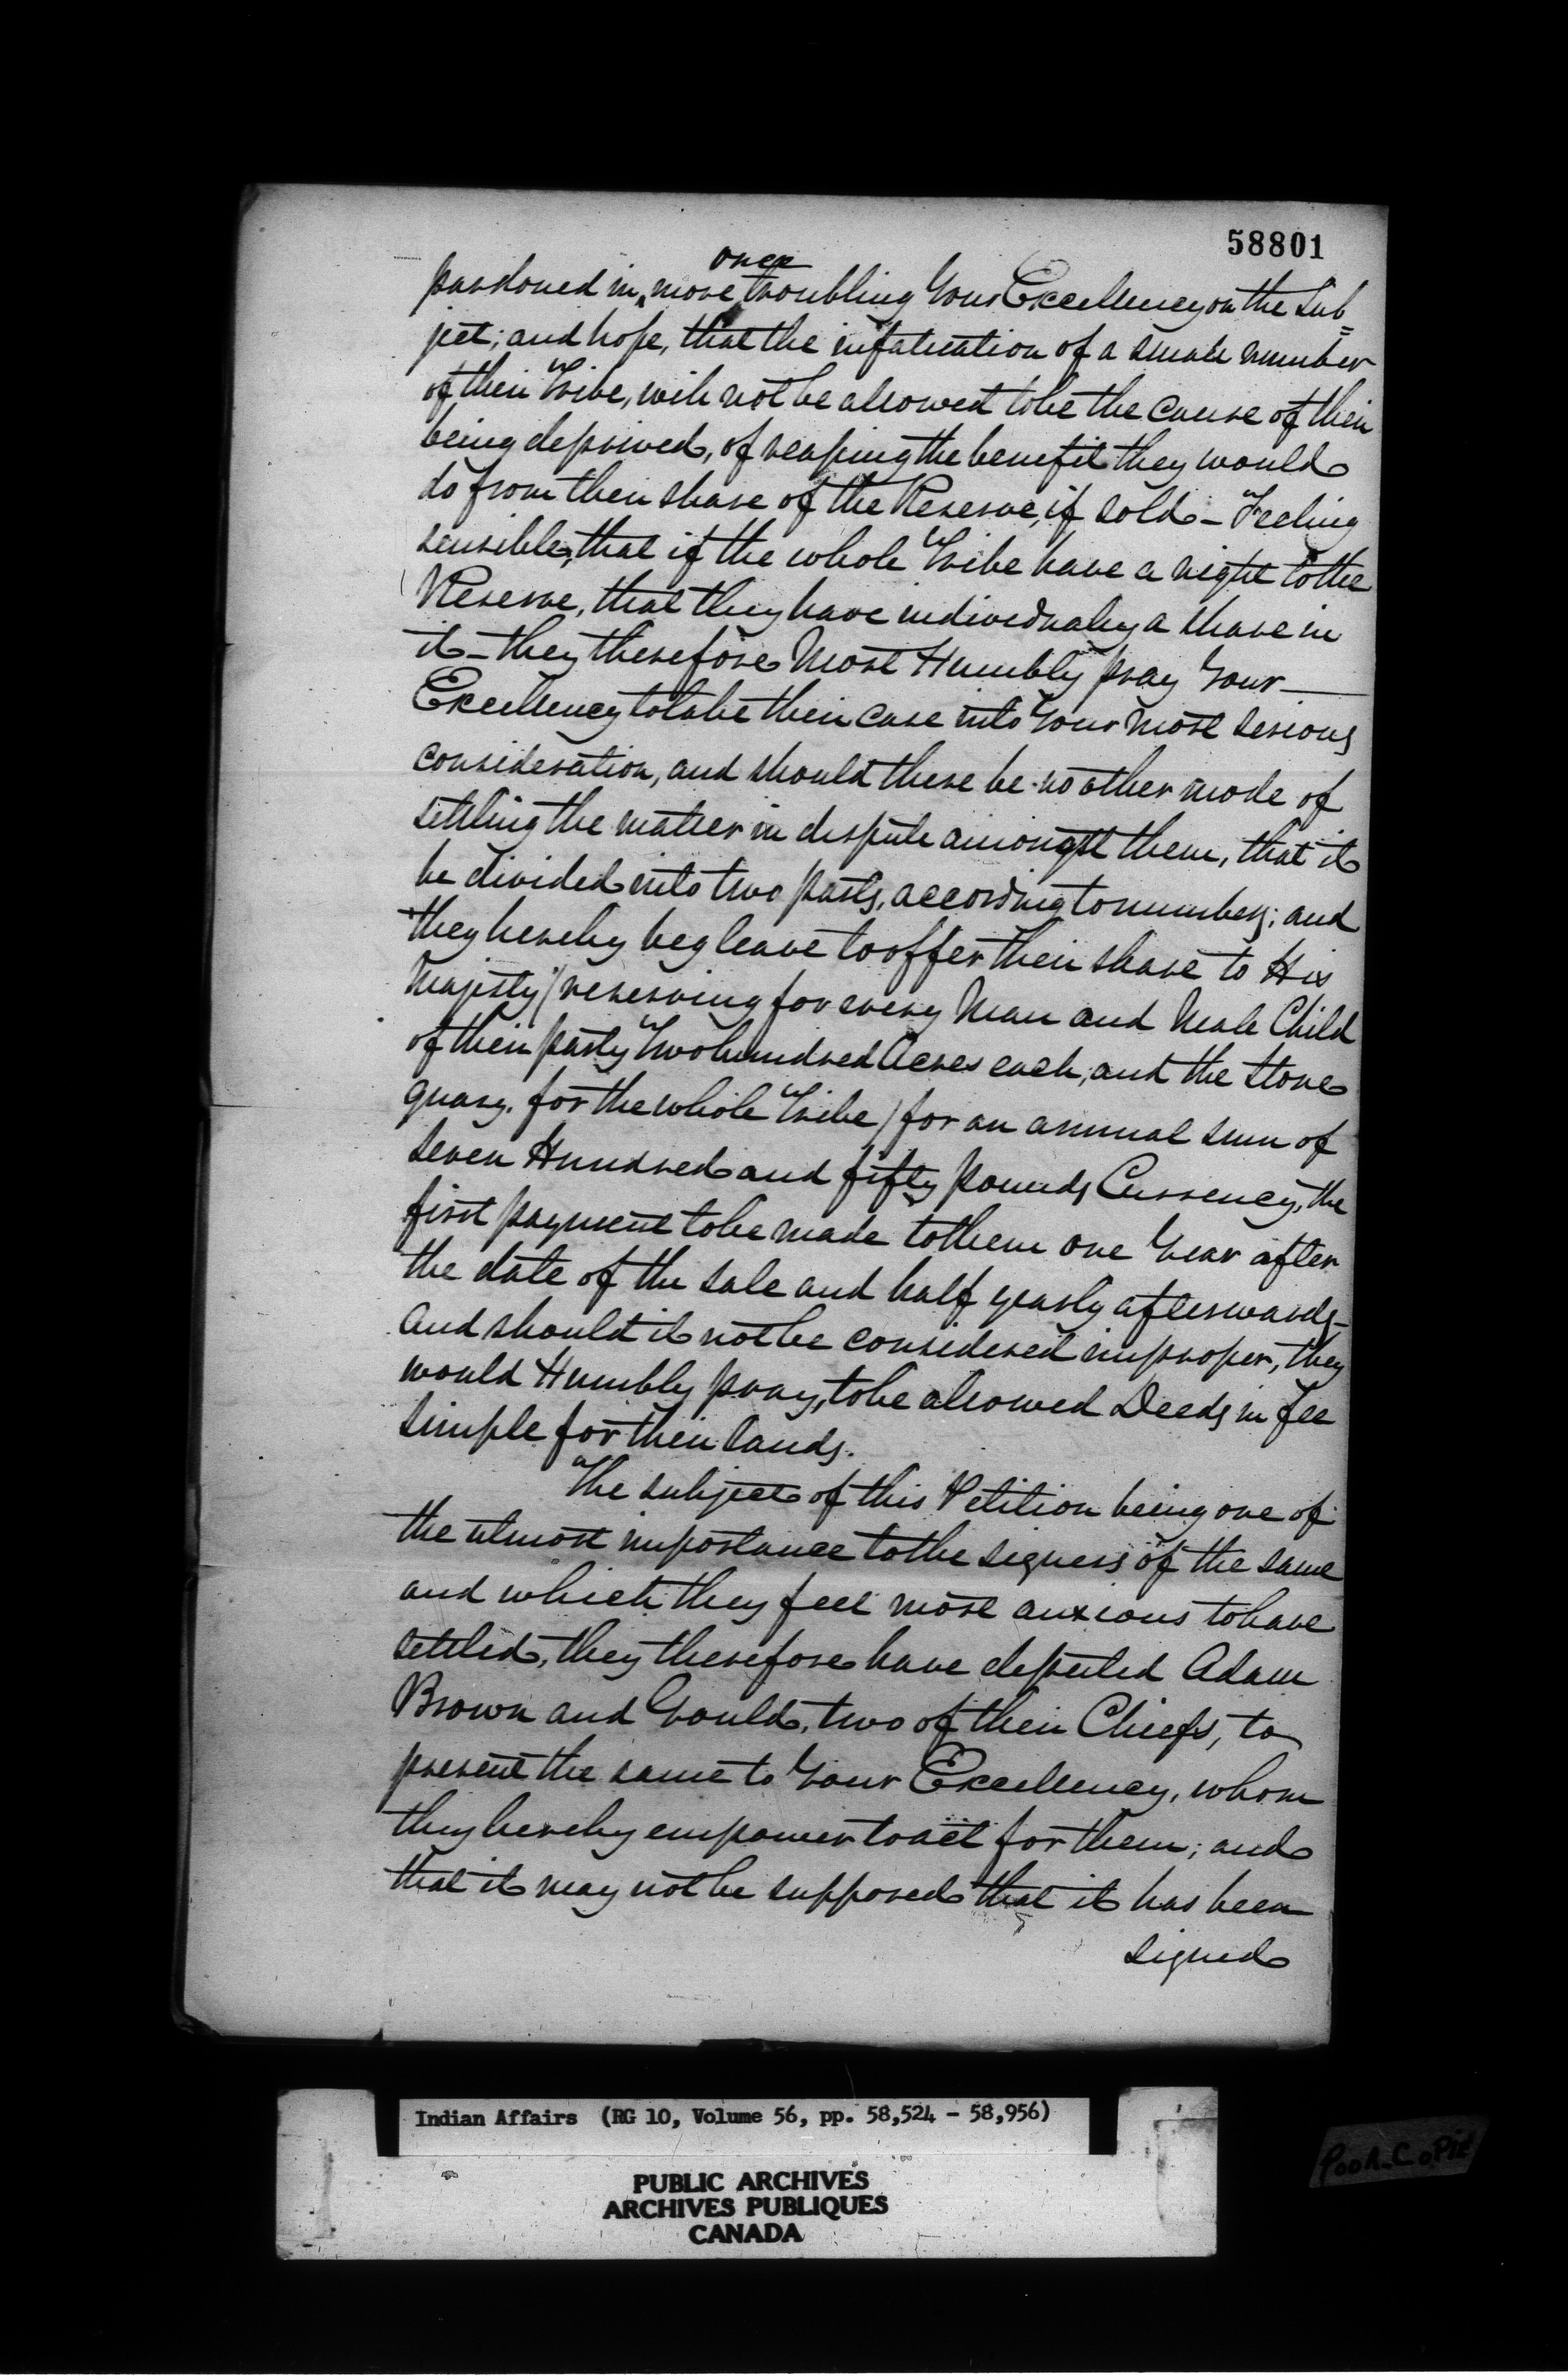 58801
once
pardoned in ‸ more troubling Your Excellency on the Sub=
ject; and hope, that the infatuation of a small number
of their Tribe, will not be allowed to be the cause of their
being deprived, of reaping the benefit they would
do from their share of the Reserve, if sold - Feeling
sensible, that if the whole Tribe have a right to the
Reserve, that they have individually a share in
it - they therefore Most Humbly pray Your —
Excellency to take their case into Your most serious
consideration, and should there be no other mode of
settling the matter in dispute amongst them, that it
be divided into two parts, according to numbers; and
they hereby beg leave to offer their share to His
Majesty / reserving for every Man and Male Child
of their party Two hundred Acres each, and the Stone
quary. for the whole Tribe / for an annual sum of
seven Hundred and fifty pounds Currency, the
first payment to be made to them one Year after
the date of the sale and half yearly afterwards -
And should it not be considered improper, they
would Humbly pray, to be allowed Deeds in fee
simple for their lands.
The subject of this Petition being one of
the utmost importance to the signers of the same
and which they feel most anxious to have
settled, they therefore have deputed Adam
Brown and Gould, two of their Chiefs, to
present the same to Your Excellency, whom
they hereby empower to act for them; and
that it may not be supposed that it has been
signed
Indian Affairs (RG 10, Volume 56, pp. 58,524 - 58,956)
PUBLIC ARCHIVES
ARCHIVES PUBLIQUES
CANADA
Poor-Copie